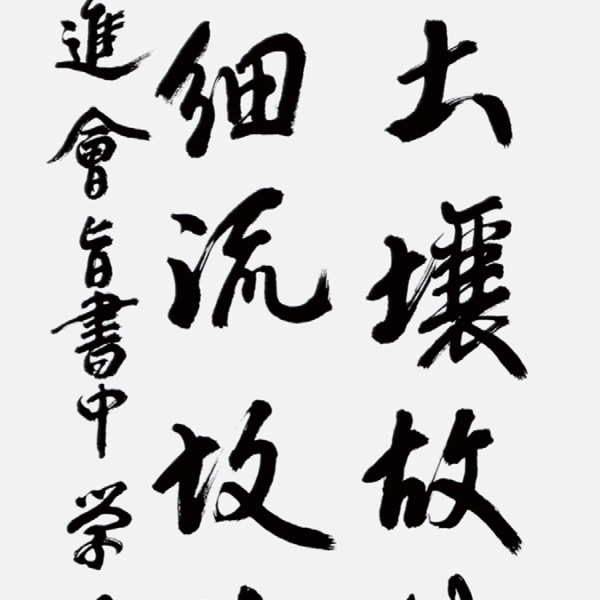 土壤故
細流故
進會旨書中学